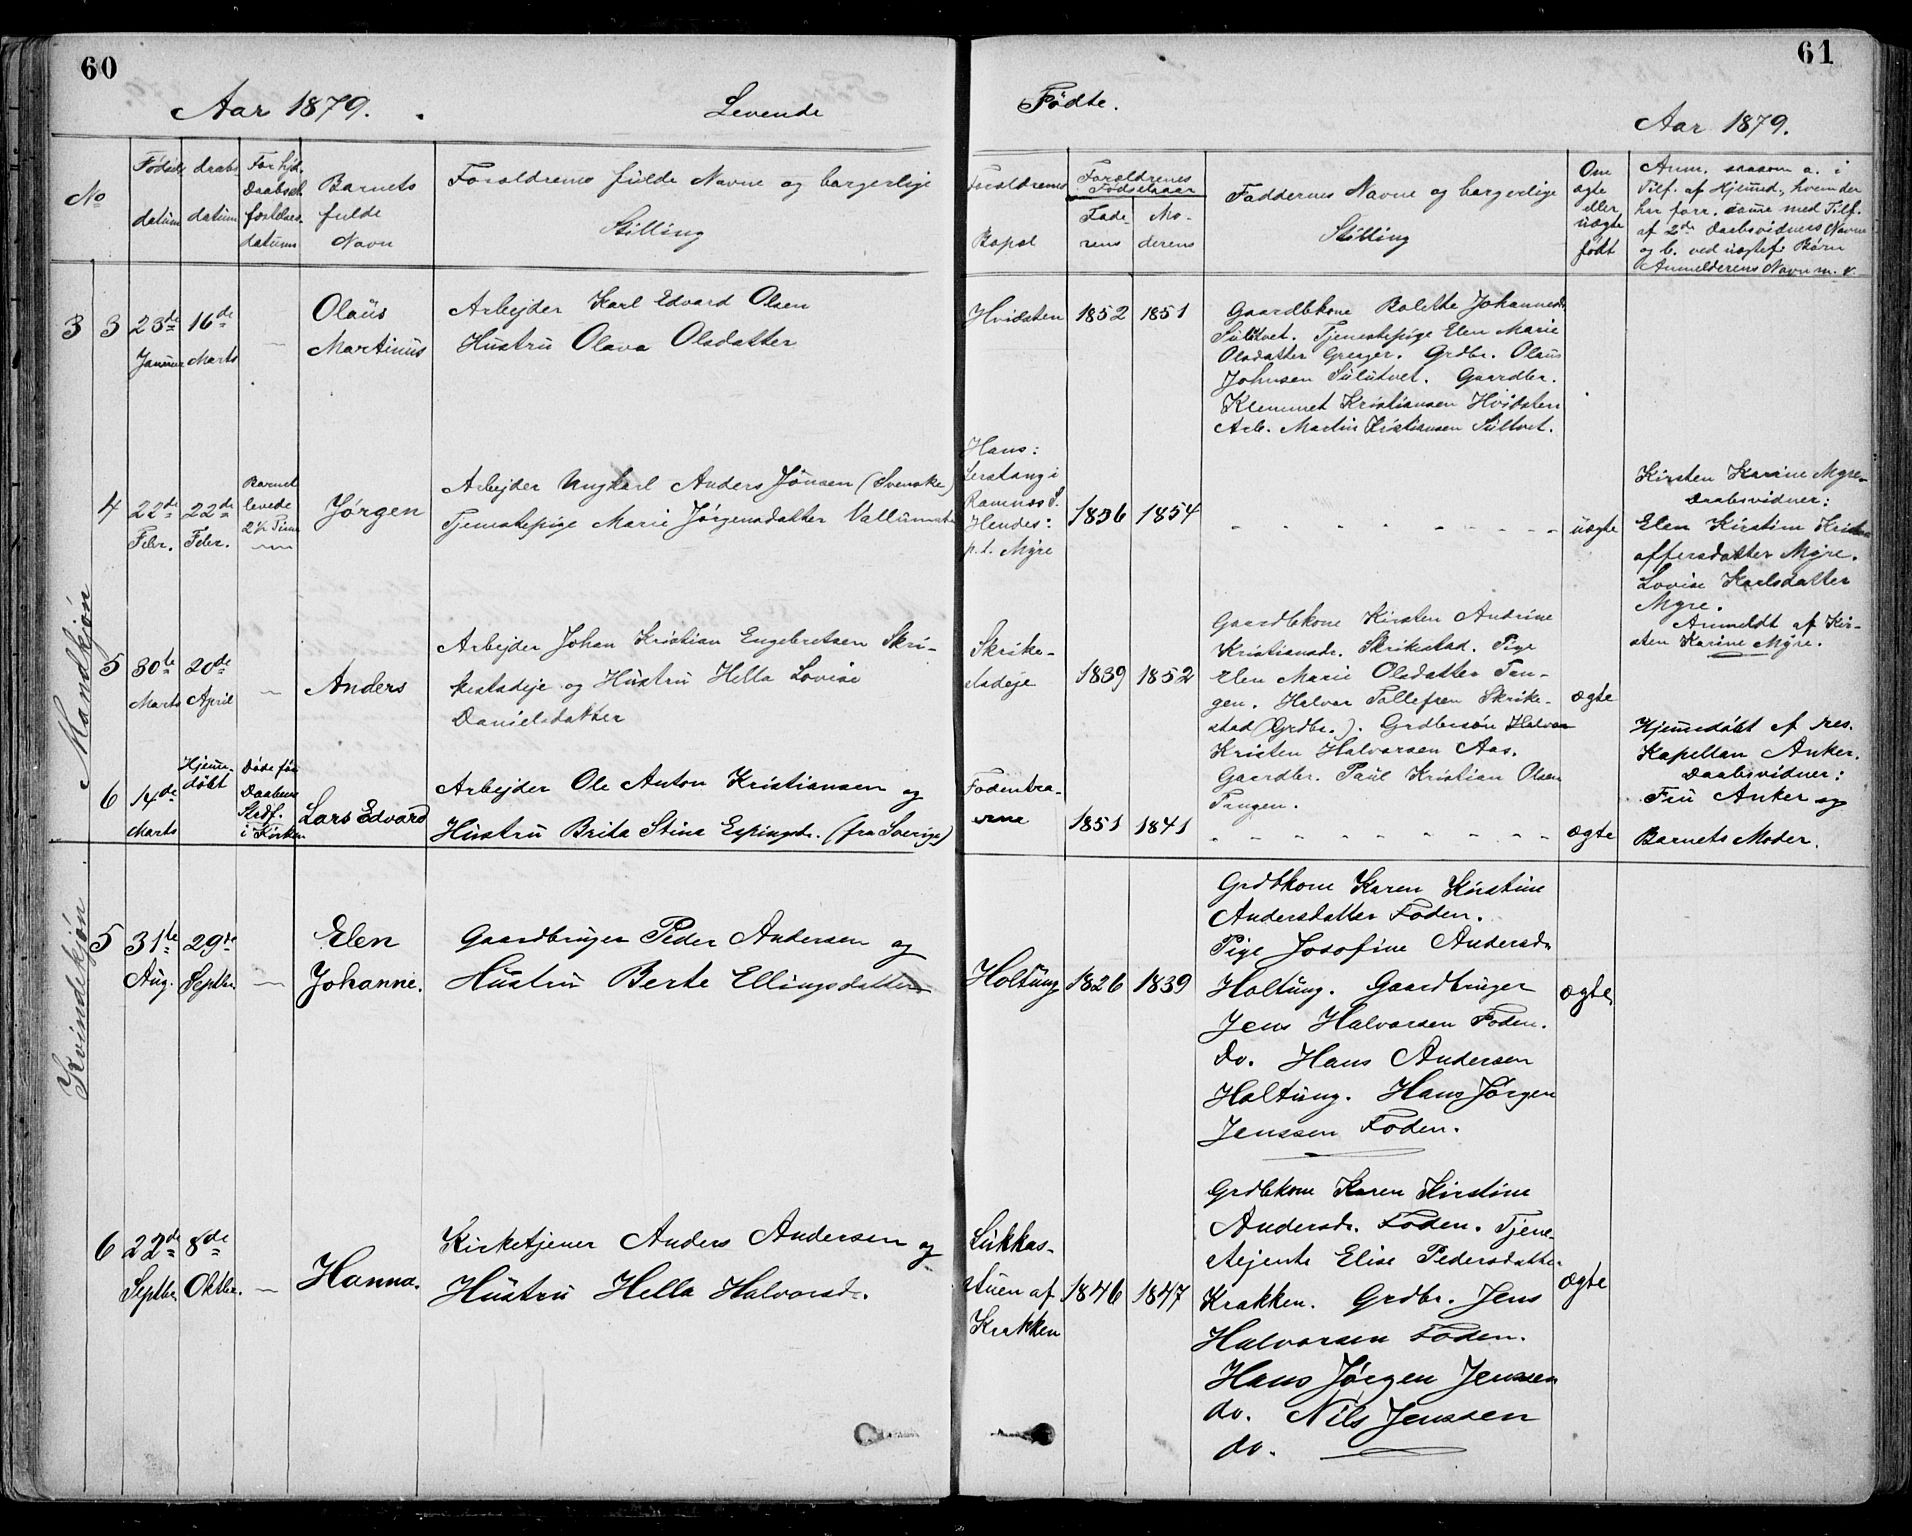 60
Aar 1879.
Levende
No
Fødsels
datum
Daabs
datum
For hjd.
Daabsst.
fæstelses-
datum
Barnets
fulde
Navn
Forældrenes fulde Navne og borgerlige
Stilling
Mandkjøn
3 3 23de
Januar
16de
Marts
—
Olaüs
Martinus
Arbejder Karl Edvard Olsen
Hustru Olava Olsdatter
4 22de
Febr.
22de
Febr.
Barnet
levede
2½ Time
Jørgen
Arbejder Ungkarl Anders Jönsen (Svenske)
Tjenestepige Marie Jørgensdatter
5 30te
Marts
20de
April
—
Anders
Arbejder Johan Kristian Engebretsen Skri-
kestadeje og Hustru Hella Lovise
Danielsdatter
6 14de
Marts
Hjemme-
döbt
Døde før
Daabens
Stadf.
i Kirken
Lars Edvard
Arbejder Ole Anton Kristiansen og
Hustru Brita Stina Espingsd. (fra Sverige)
Kvindekjøn
5 31te
Aug.
29de
Septbr.
—
Elen
Johanne.
Gaardbruger Peder Andersen og
Hustru Berte Ellingsdatter
6 22de
Septbr.
8de
Oktbr.
—
Hanna.
Kirketjener Anders Andersen og
Hustru Hella Halvorsd.
61
Fødte.
Aar 1879.
Forældrenes
Bopæl
Forældrenes
Fødselsaar
Fade-
rens
Mo-
derens
Faddernes Navne og borgerlige
Stilling
Om
ægte
eller
uægte
født
Anm. saasom a. i
Tilf. af Hjemmed., hvem der
har forr. samme med Tilf.
af 2de Daabsvidners Navne
og b. ved uægtef. Børn
Anmelderens Navn m. v.
Hvidsten 1852 1851
Gaardbkone Bolette Johannesd.
Sulutvet. Tjenestepige Elen Marie
Olsdatter Greager. Grdbr. Olaus
Johnsen Sulutvet. Gaardbr.
Klemmet Kristiansen Hvidsten
Arb. Martin Kristiansen Sultvet.
Hans:
Lerstang i
Ramnæs S.
Hendes:
p.t. Myre
1836 1854
- - - - - - - - -
uægte
Kirsten Karine Myre-
Daabsvidner:
Elen Kirstine Krist-
offersdatter Myre.
Lovise Karlsdatter
Myre.
Anmeldt af Kir-
sten Karine Myre.
Skrike-
stadeje
1839 1852
Gaardbkone Kirsten Andrine
Kristiansd. Skrikestad. Pige
Elen Marie Olsdatter Tan-
gen. Halvor Tollefsen Skrike-
stad (Grdbr.). Grdbrsøn Halvor
Kristen Halvorsen Aas.
Gaardbr. Paul Kristian Olsen
Tangen.
ægte
Fodentra-
erne
1851 1841
- - - - - - - - -
ægte
Hjemmedøbt af res.
Kapellan Anker.
Daabsvidner:
Fru Anker og
Barnets Moder.
Holtung 1826 1839
Grdbkone Karen Kirstine
Andersdatter Foden.
Pige Josofine Andersd.
Holtung. Gaardbruger
Jens Halvorsen Foden.
do. Hans Andersen
Holtung. Hans Jørgen
Jenssen Foden.
ægte
Lukkas-
stuen af
Krakken
1846 1847
Grdbkone Karen Kirstine
Andersd. Foden. Tjene-
stejente Elise Pedersdatter
Krakken. Grdbr. Jens
Halvorsen Foden.
Hans Jørgen Jenssen
do. Nils Jenssen
do.
ægte